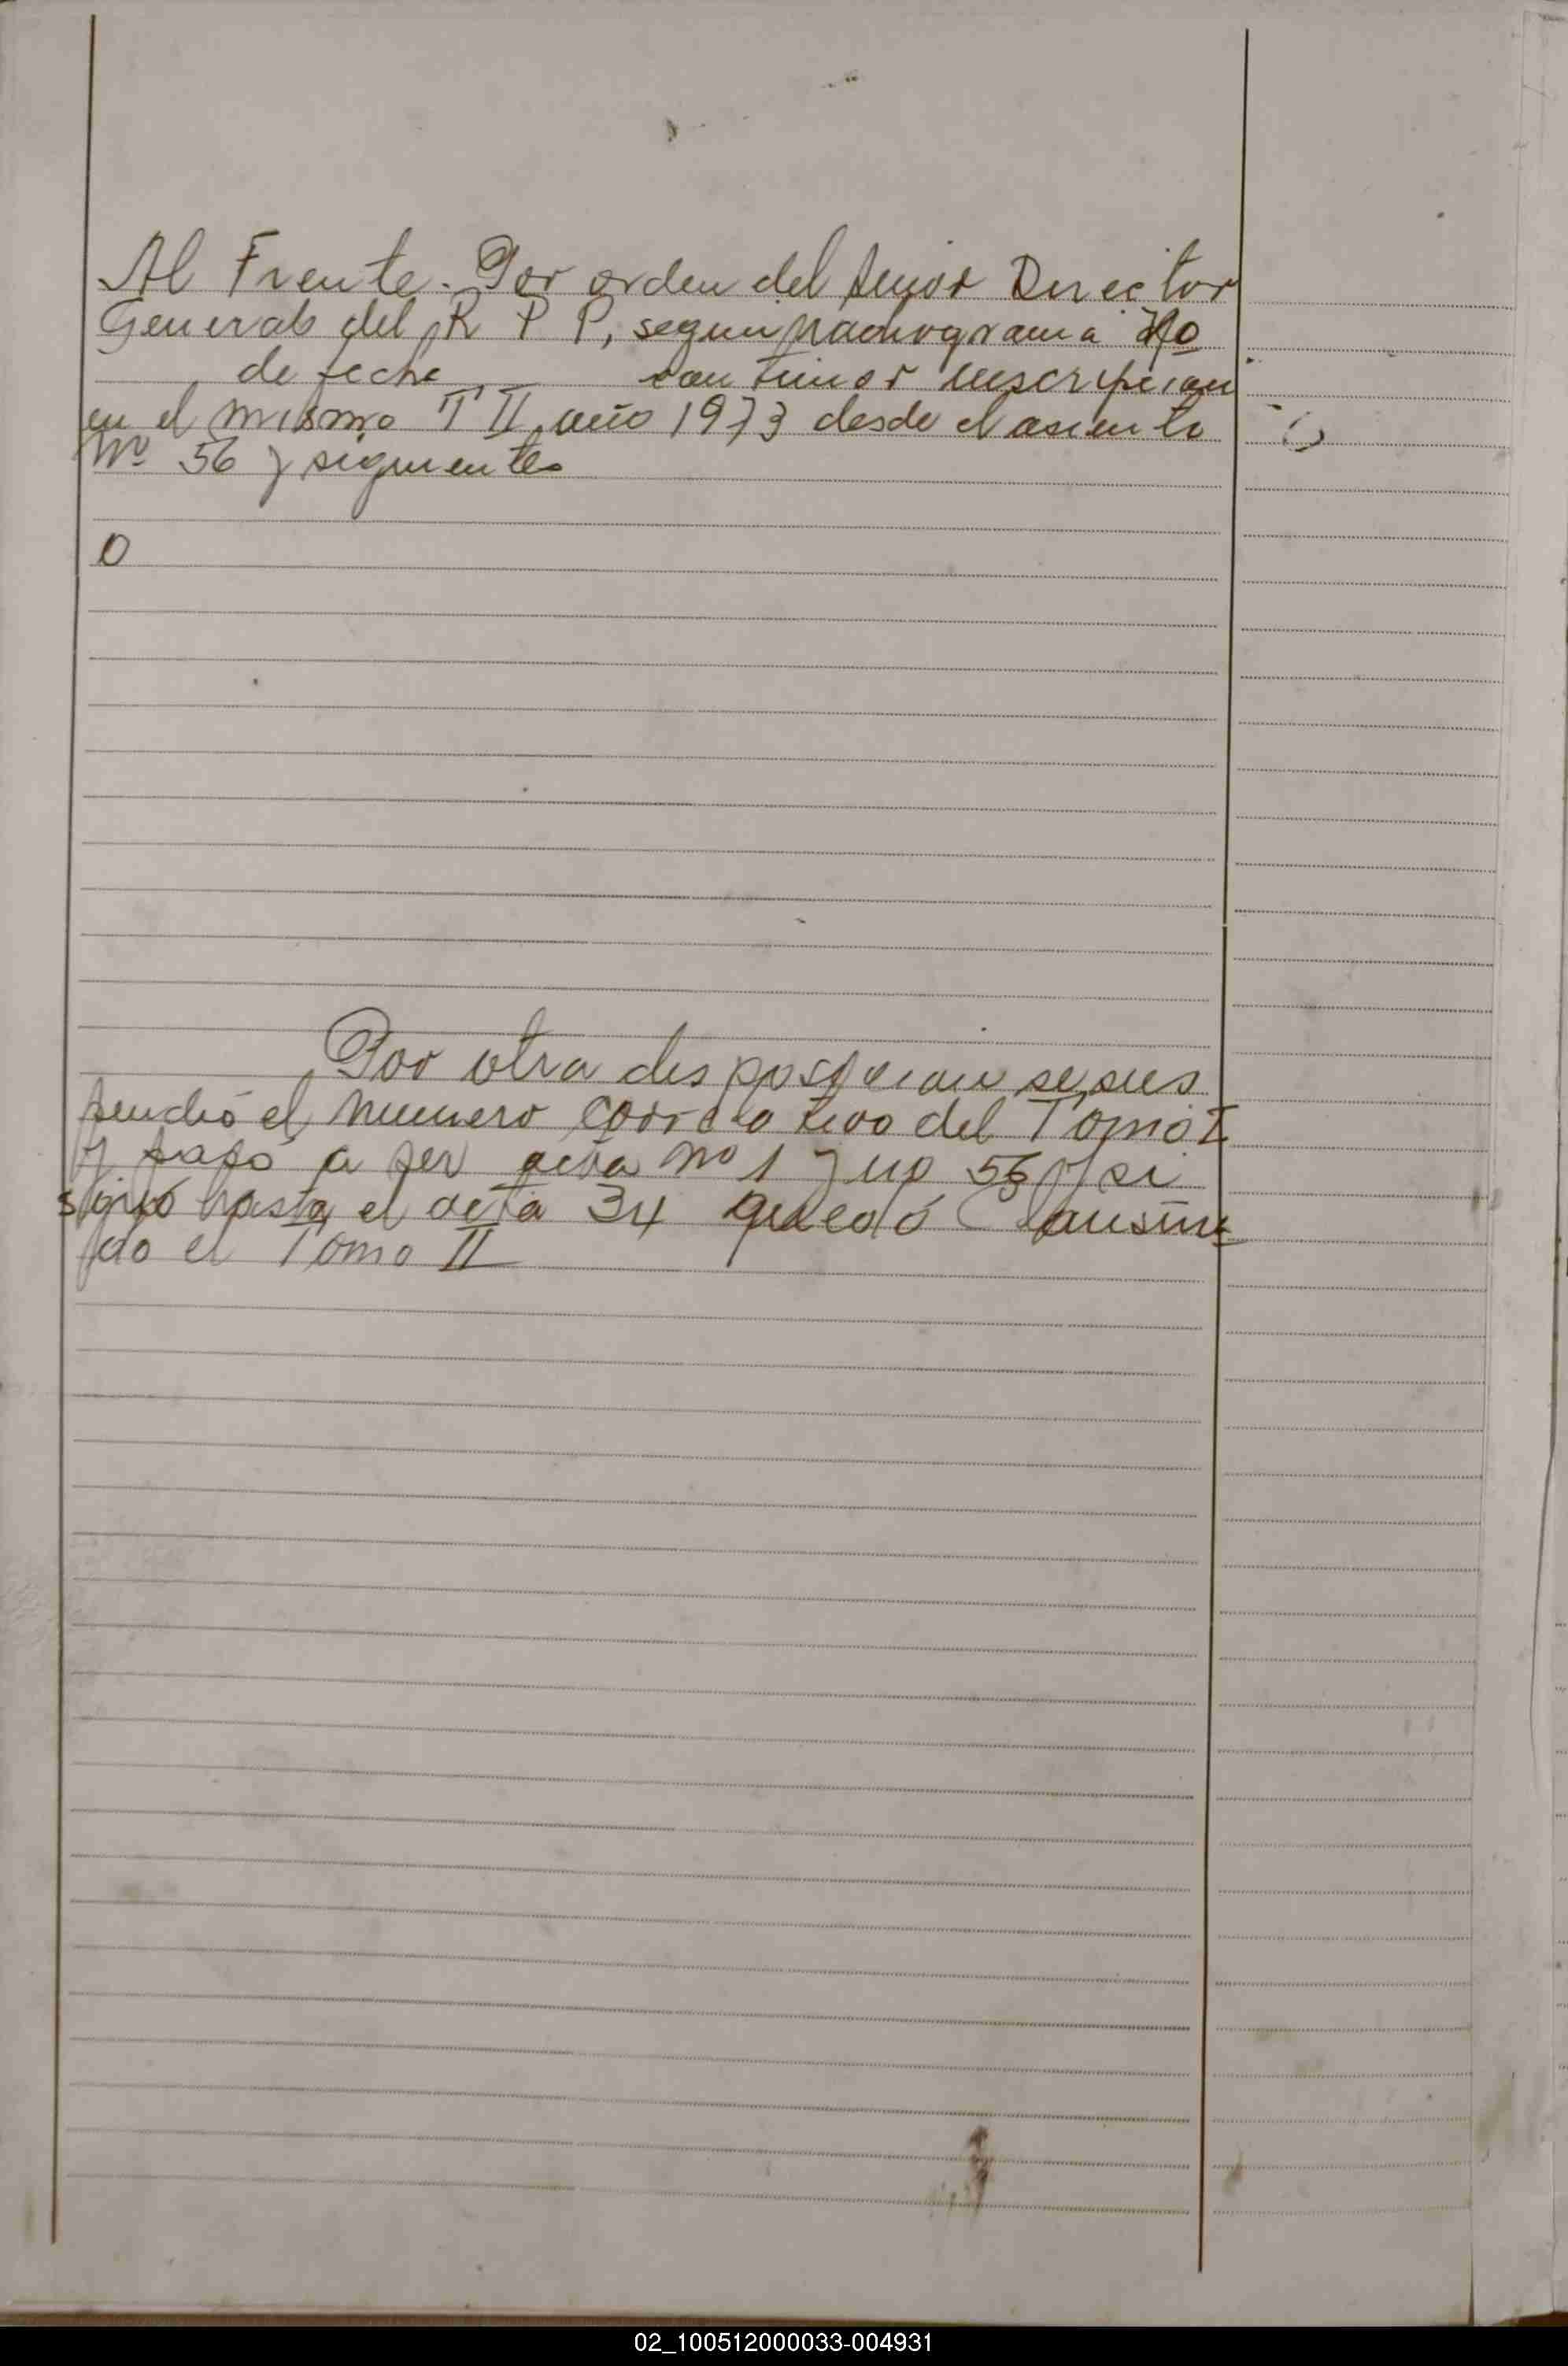 Al Frente. Por orden del Senor Director
General del R P P, segun radiograma No
de fecha continuar inscripcion
en el mismo T II año 1973 desde el asiento
Nº 56 y siguientes
0
Por otra disposicion se sus
pendió el numero correlativo del Tomo I
y paso a ser acta nº 1 y no 56 y si
siguió hasta el acta 34 quedó Clausura
do el Tomo II
02_100512000033-004931